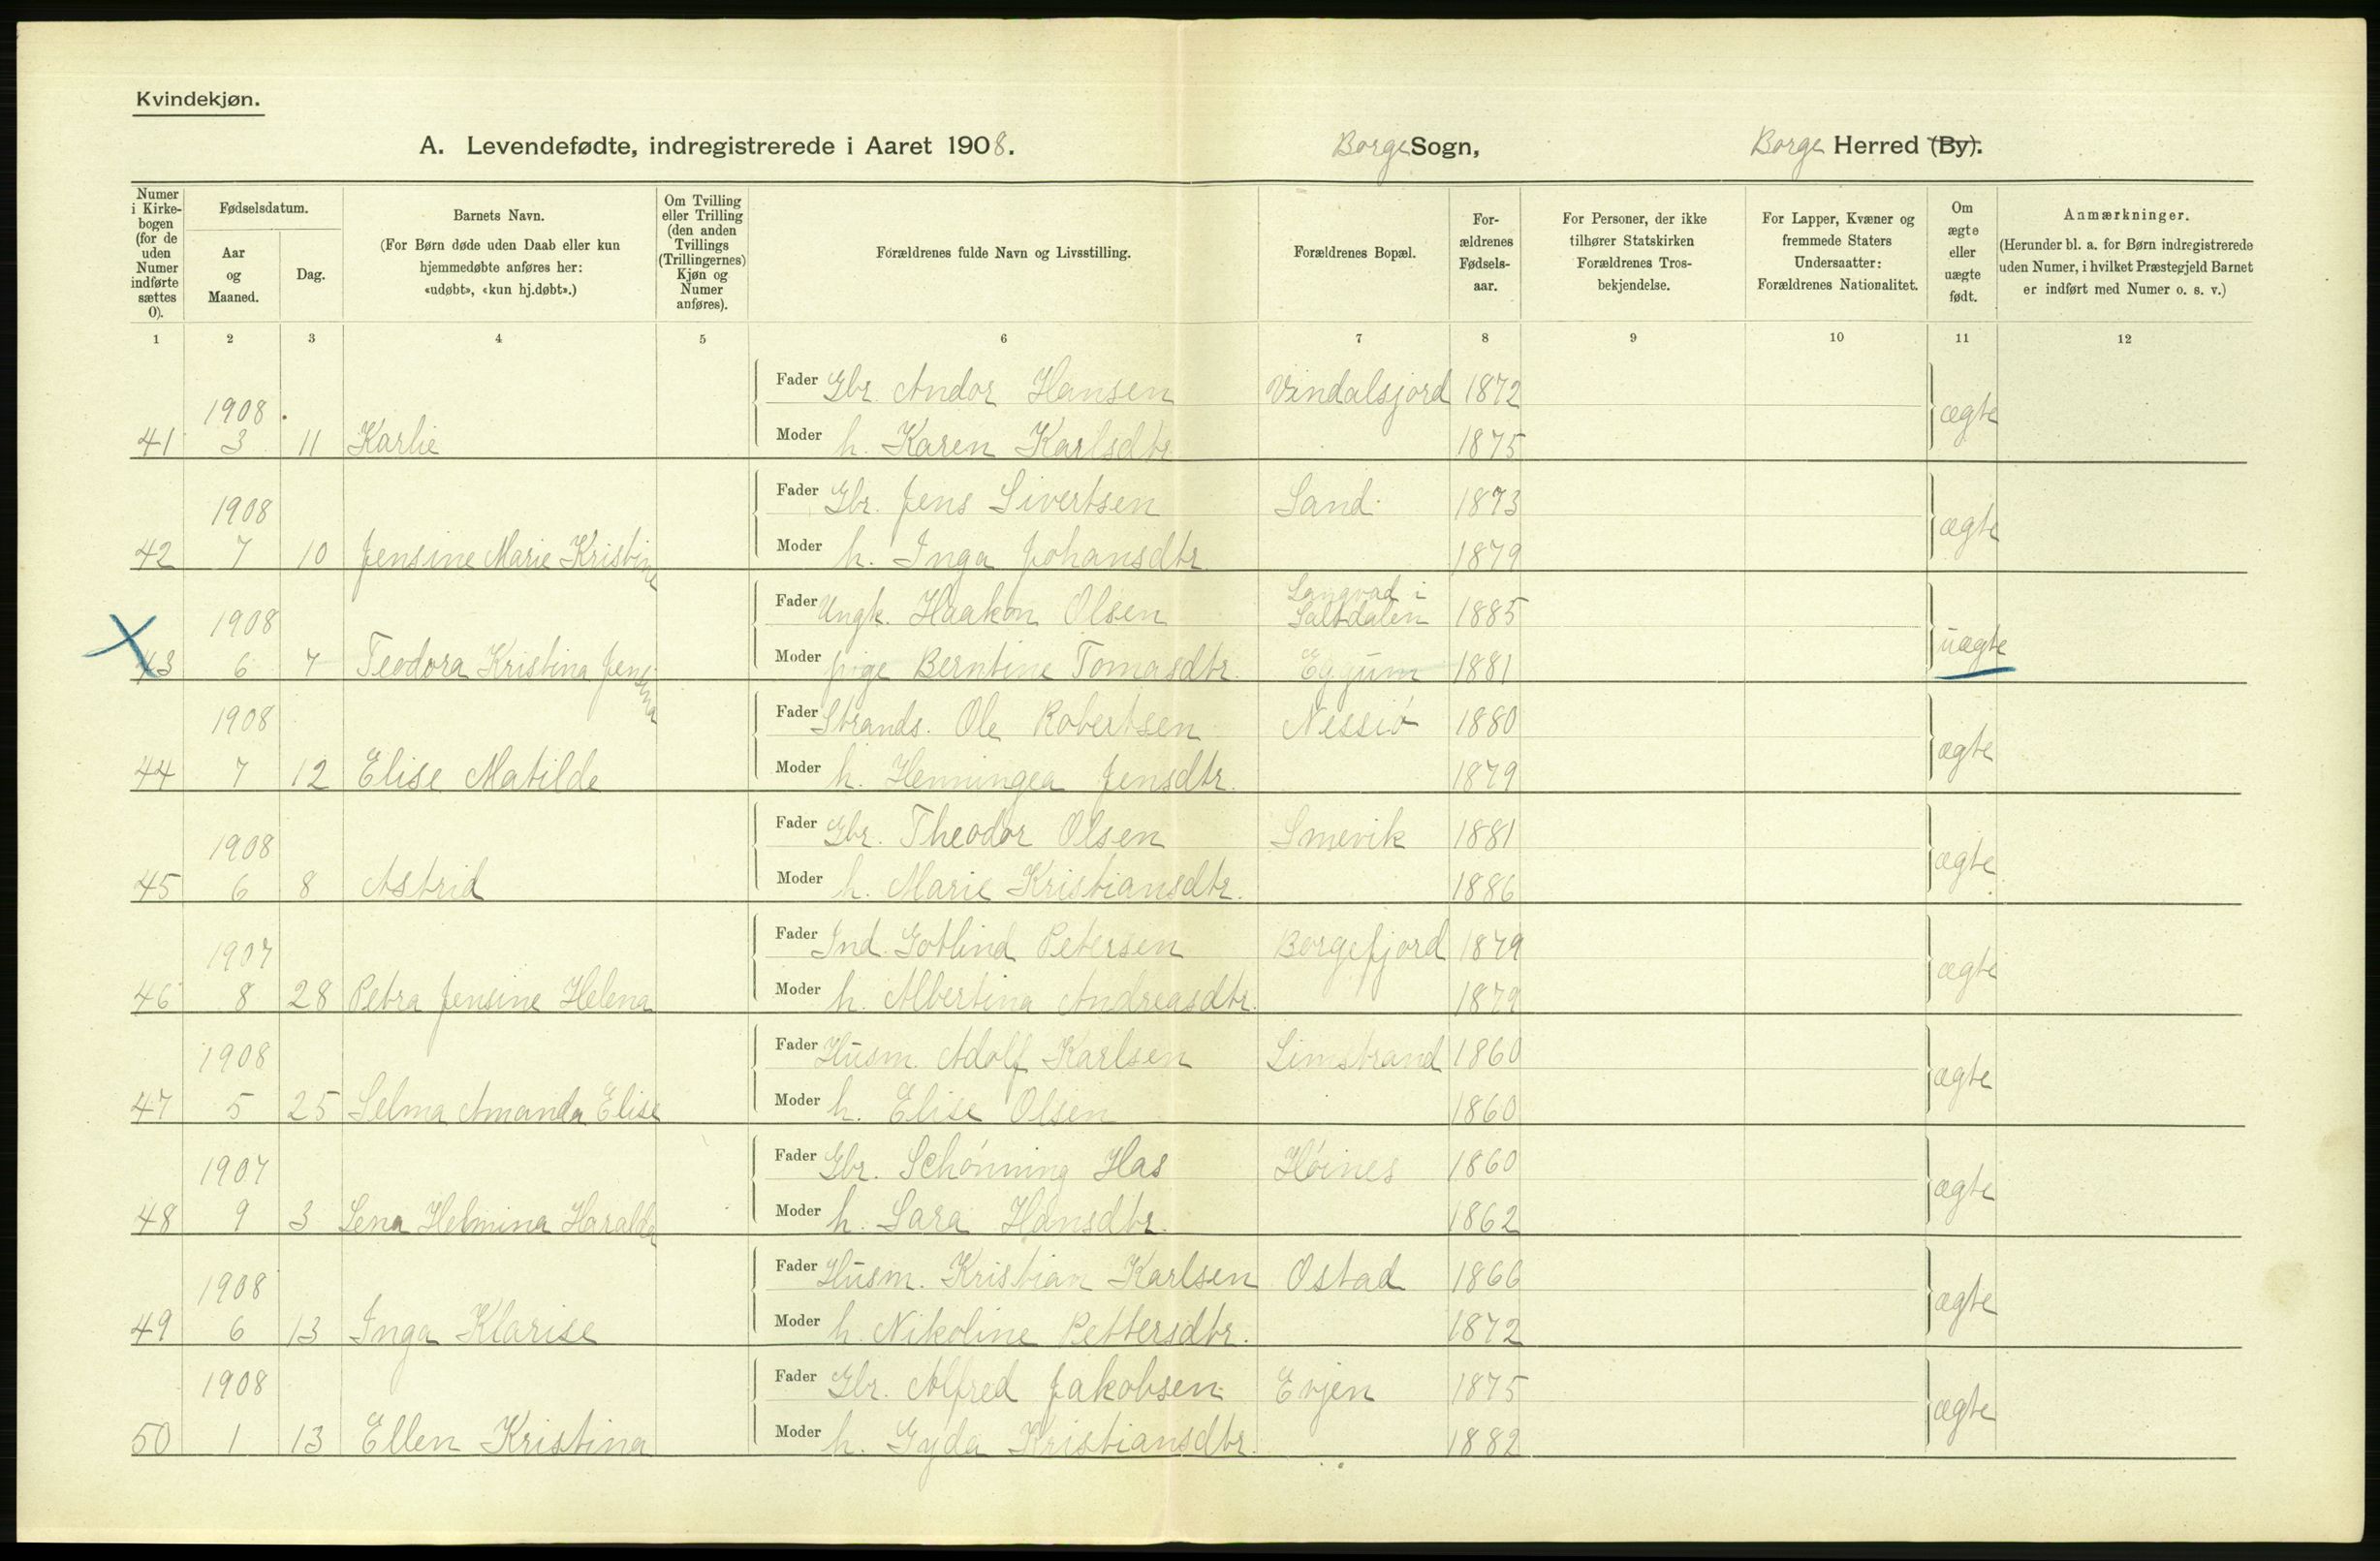 Kvindekjøn.
A. Levendefødte, indregistrerede i Aaret 1908.
Borge Sogn,
Borge Herred (By).
Numer i Kirke-bogen (for de uden Numer indførte sættes 0).
Fødselsdatum.
Aar og Maaned.
Dag.
Barnets Navn.
(For Børn døde uden Daab eller kun hjemmedøbte anføres her: «udøbt», «kun hj.døbt».)
Om Tvilling eller Trilling (den anden Tvillings (Trillingernes) Kjøn og Numer anføres).
Forældrenes fulde Navn og Livsstilling.
Forældrenes Bopæl.
For-ældrenes Fødsels-aar.
For Personer, der ikke tilhører Statskirken Forældrenes Tros-bekjendelse.
For Lapper, Kvæner og fremmede Staters Undersaatter: Forældrenes Nationalitet.
Om ægte eller uægte født.
Anmærkninger.
(Herunder bl. a. for Børn indregistrerede uden Numer, i hvilket Præstegjeld Barnet er indført med Numer o. s. v.)
1 2 3 4 5 6 7 8 9 10 11 12
Fader Gbr. Andor Hansen Vindalsjord 1872
1908 ægte
41 3 11 Karlie Moder h. Karen Karlsdtr. 1875
Fader Gbr. Jens Sivertsen Sand 1873
1908 ægte
42 7 10 Jensine Marie Kristine Moder h. Inga Johansdtr. 1879
Fader Ungk. Haakon Olsen Langvad i Saltdalen 1885
1908 uægte
43 6 7 Teodora Kristina Jensina Moder pige Berntine Tomasdtr. Eggum 1881
Fader Strands. Ole Robertsen Nessiø 1880
1908 ægte
44 7 12 Elise Matilde Moder h. Henningea Jensdtr. 1879
Fader Gbr. Theodor Olsen Smevik 1881
1908 ægte
45 6 8 Astrid Moder h. Marie Kristiansdtr. 1886
Fader Ind. Gotlind Petersen Borgefjord 1879
1907 ægte
46 8 28 Petra Jensine Helena Moder h. Albertina Andreasdtr. 1879
Fader Husm. Adolf Karlsen Limstrand 1860
1908 ægte
47 5 25 Selma Amanda Elise Moder h. Elise Olsen 1860
Fader Gbr. Schønning Has Høines 1860
1907 ægte
48 9 3 Lena Helmina Haralda Moder h. Sara Hansdtr. 1862
Fader Husm. Kristian Karlsen Ostad 1866
1908 ægte
49 6 13 Inga Klarise Moder h. Nikoline Pettersdtr. 1872
Fader Gbr. Alfred Jakobsen Evjen 1875
1908 ægte
50 1 13 Ellen Kristina Moder h. Gyda Kristiansdtr. 1882